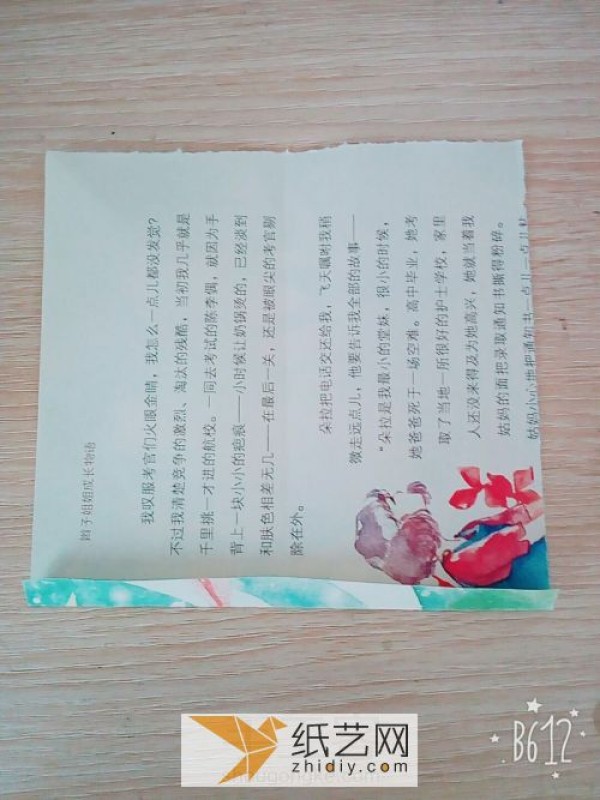 辫子姐姐成长物语
我叹服考官们火眼金睛，我怎么一点儿都没发觉？
不过我清楚竞争的激烈、淘汰的残酷，当初我几乎就是
千里挑一才进的航校。一同去考试的陈季偶，就因为手
背上一块小小的疤痕——小时候让奶锅烫的，已经淡到
和肤色相差无几——在最后一关，还是被眼尖的考官剔
除在外。
朵拉把电话交还给我，飞天嘱咐我稍
微走远点儿，他要告诉我全部的故事——
“朵拉是我最小的堂妹，很小的时候，
她爸爸死于一场空难。高中毕业，她考
取了当地一所很好的护士学校，家里
人还没来得及为她高兴，她就当着我
姑妈的面把录取通知书撕得粉碎。
姑妈小心地把通知书一点儿一点儿粘
纸艺网
zhidiy.com
B612